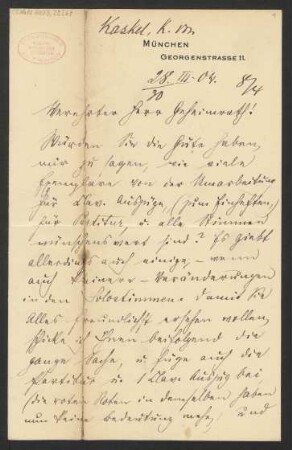 Kaskel, K. von
MÜNCHEN
GEORGENSTRASSE 11.
28. III. 04.
30 8/4
Verehrter Herr Geheimrath!
Würden Sie die Güte haben,
mir zu sagen, wie viele
Exemplare von der Umarbeitung
für Clav. Auszüge, (zum Einheften)
für Partitur u. alle Stimmen
wünschenswert sind? Es giebt
allerdings auch einige – wenn
auch kleinere – Veränderungen
in den Solostimmen. Damit Sie
Alles freundlichst ersehen wollen,
schicke ich Ihnen beifolgend die
ganze Sache, u. füge auch die
Partitur u. 1 Clav. Auszug bei
(die roten Noten in demselben haben
nun keine Bedeutung mehr, und